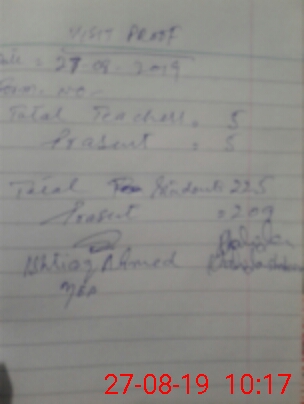 VISIT PROOF
: 27-08-2019
No-
Total Teachers = 5
Prasent = 5
Total Students 225
Prasent = 209
Ishtiaq Ahmed
27-08-19 10:17